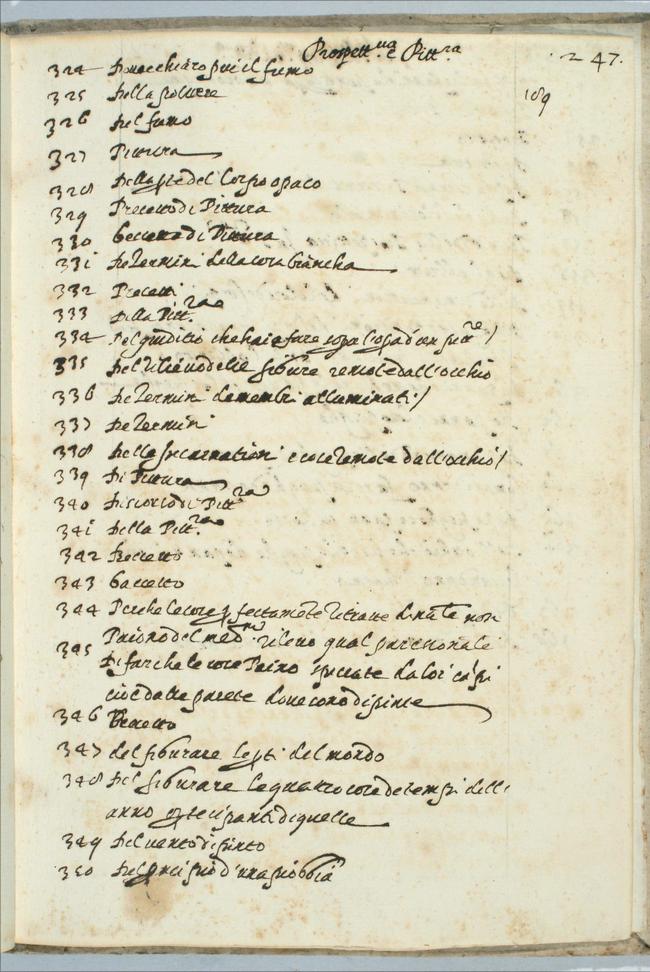 Prospett.ua e Pitt.ra
. 247.
109
324 Donde è chiaro più il fumo
325 Della polvere
326 Del fumo
327 Pittura
328 Della pte del Corpo opaco
329 Precetto di Pittura
330 Precetto di Pittura
331 De termini della cosa biancha
332 Precetti
333 Della Pitt.ra
334 Del giuditio che hai a fare sopa l'opa d'un pitt.re /
335 Del rilievo delle figure remote dall'occhio
336 De termini de membri alluminati. /
337 De termini
338 Della Incarnatione e cose remote dall'occhio /
339 Di Pittura
340 Discorso di Pitt.ra
341 Della Pitt.ra
342 Precetto
343 Precetto
344 Perche le cose pfettamete ritratte di nāle non
Paiono del med.mo rilevo qual pare
345 Di far che le cose Paino spiccate da lor cāpi
cioè dalla parete dove sono dipinte
346 Precetto
347 del figurare le pti del mondo
348 Del figurare le quattro cose de tempi dell
anno o ptecipanti di quelle
349 Del vento dipinto
350 Del pncipio d'una pioggia